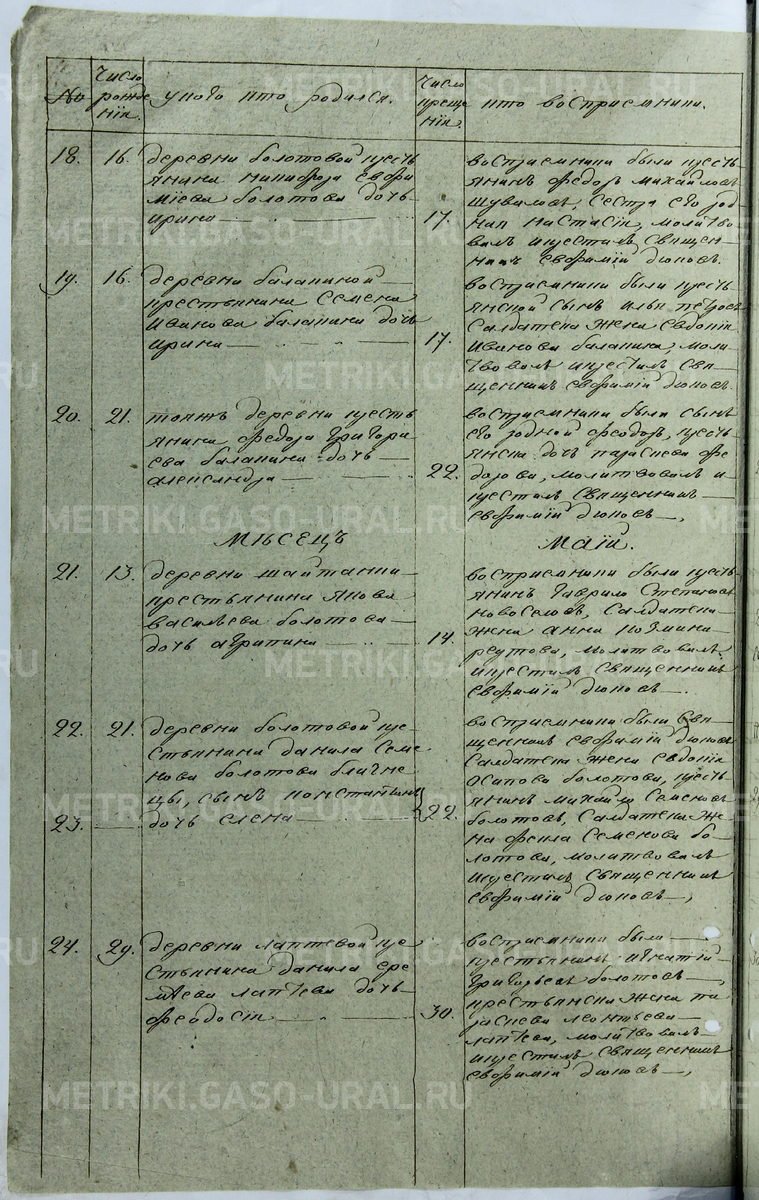 No
Число
рожде
нія.
у кого кто родился.
Число
креще
нія.
кто восприемники.
18. 16.
деревни болотовой кресть
янина никифора Евфи
міева болотова дочь
ирина
17.
восприемники были кресть
янинъ федоръ михайловъ
шуваловъ, сестра его род
ная настасія, молитво
валъ икрестилъ Священ
никъ евфимій
19. 16.
деревни балакиной
крестьянина Семена
иванова балакина дочь
ирина
17.
восприемники были кресть
янской сынъ илья петровъ
Салдатска жена Евдокія
иванова балакина, моли
твовалъ икрестилъ Свя
щенникъ евфимій
20. 21.
тояжъ деревни кресть
янина федора григорь
ева балакина дочь
александра
22.
восприемники были сынъ
его родной феодоръ, кресть
янска дочь параскева фе
дорова, молитвовалъ и
крестилъ Священникъ
евфимій
МѢСЕЦЪ МАІЙ.
21. 13.
деревни шайтанки
крестьянина якова
васильева болотова
дочь агрипина
14.
восприемники были кресть
янинъ гаврило Степановъ
новоселовъ, Салдатска
жена анна козмина
реутова, молитвовалъ
икрестилъ Священникъ
евфимій
22. 21.
деревни болотовой кре
стьянина данила Семе
нова болотова близне
цы, сынъ константинъ
23.
дочь елена
22.
восприемники были Свя
щенникъ евфимій
Салдатска жена евдокія
осипова болотова, кресть
янинъ михайло Семеновъ
болотовъ, Салдатска же
на фекла Семенова бо
лотова, молитвовалъ
икрестилъ Священникъ
евфимій
24. 29.
деревни лаптевой кре
стьянина данила ере
мѣева лаптева дочь
феодосія
30.
восприемники были
крестьянинъ игнатій
григорьевъ болотовъ
крестьянска жена па
раскева леонтьева
лаптева, молитвовалъ
икрестилъ священникъ
евфимій
METRIKI.GASO-URAL.RU